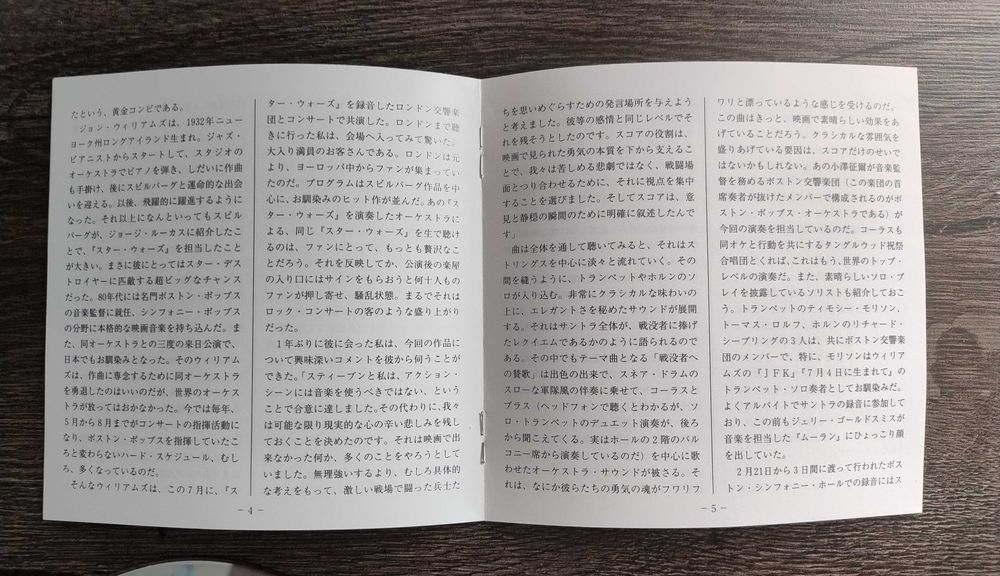 たという、黄金コンビである。
　ジョン・ウィリアムズは、1932年ニュー
ヨーク州ロングアイランド生まれ。ジャズ・
ピアニストからスタートして、スタジオの
オーケストラでピアノを弾き、しだいに作曲
も手掛け、後にスピルバーグと運命的な出会
いを迎える。以後、飛躍的に躍進するように
なった。それ以上になんといってもスピル
バーグが、ジョージ・ルーカスに紹介したこ
とで、『スター・ウォーズ』を担当したこと
が大きい。まさに彼にとってはスター・デス
トロイヤーに匹敵する超ビッグなチャンス
だった。80年代には名門ボストン・ポップス
の音楽監督に就任、シンフォニー・ポップス
の分野に本格的な映画音楽を持ち込んだ。ま
た、同オーケストラとの三度の来日公演で、
日本でもお馴染みとなった。そのウィリアム
ズは、作曲に専念するために同オーケストラ
を勇退したのはいいのだが、世界のオーケス
トラが放ってはおかなかった。今では毎年、
5月から8月までがコンサートの指揮活動に
なり、ボストン・ポップスを指揮していたこ
ろと変わらないハード・スケジュール、むし
ろ、多くなっているのだ。
　そんなウィリアムズは、この7月に、『ス
ター・ウォーズ』を録音したロンドン交響楽
団とコンサートで共演した。ロンドンまで聴
きに行った私は、会場へ入ってみて驚いた。
大入り満員のお客さんである。ロンドンは元
より、ヨーロッパ中からファンが集まってい
たのだ。プログラムはスピルバーグ作品を中
心に、お馴染みのヒット作が並んだ。あの『ス
ター・ウォーズ』を演奏したオーケストラに
よる、同じ『スター・ウォーズ』を生で聴け
るのは、ファンにとって、もっとも贅沢なこ
とだろう。それを反映してか、公演後の楽屋
の入り口にはサインをもらおうと何十人もの
ファンが押し寄せ、騒乱状態。まるでそれは
ロック・コンサートの客のような盛り上がり
だった。
　1年ぶりに彼に会った私は、今回の作品に
ついて興味深いコメントを彼から伺うことが
できた。「スティーブンと私は、アクション・
シーンには音楽を使うべきではない、という
ことで合意に達しました。その代わりに、我々
は可能な限り現実的な心の辛い悲しみを残し
ておくことを決めたのです。それは映画で出
来なかった何か、多くのことをやろうとして
いました。無理強いするより、むしろ具体的
な考えをもって、激しい戦場で闘った兵士た
－4－
ちを思いめぐらすための発言場所を与えよう
と考えました。彼等の感情と同じレベルでそ
れを残そうとしたのです。スコアの役割は、
映画で見られた勇気の本質を下から支えるこ
とで、我々は苦しめる悲劇ではなく、戦闘場
面とつり合わせるために、それに視点を集中
することを選びました。そしてスコアは、意
見と静穏の瞬間のために明確に叙述したんで
す」
　曲は全体を通して聴いてみると、それはス
トリングスを中心に淡々と流れていく。その
間を縫うように、トランペットやホルンのソ
ロが入り込む。非常にクラシカルな味わいの
上に、エレガントさを秘めたサウンドが展開
する。それはサントラ全体が、戦没者に捧げ
たレクイエムであるかのように語られるので
ある。その中でもテーマ曲となる「戦没者へ
の賛歌」は出色の出来で、スネア・ドラムの
スローな軍隊風の伴奏に乗せて、コーラスと
ブラス（ヘッドフォンで聴くとわかるが、ソ
ロ・トランペットのデュエット演奏が、後ろ
から聞こえてくる。実はホールの2階のバル
コニー席から演奏しているのだ）を中心に歌
わせたオーケストラ・サウンドが被さる。そ
れは、なにか彼らたちの勇気の魂がフワリフ
ワリと漂っているような感じを受けるのだ。
この曲はきっと、映画で素晴らしい効果をあ
げていることだろう。クラシカルな雰囲気を
盛りあげている要因は、スコアだけのせいで
はないかもしれない。あの小澤征爾が音楽監
督を務めるボストン交響楽団（この楽団の首
席奏者が抜けたメンバーで構成されるのがボ
ストン・ポップス・オーケストラである）が
今回の演奏を担当しているのだ。コーラスも
同オケと行動を共にするタングルウッド祝祭
合唱団とくれば、これはもう、世界のトップ・
レベルの演奏だ。また、素晴らしいソロ・プ
レイを披露しているソリストも紹介しておこ
う。トランペットのティモシー・モリソン、
トーマス・ロルフ、ホルンのリチャード・
シーブリングの3人は、共にボストン交響楽
団のメンバーで、特に、モリソンはウィリア
ムズの『JFK』『7月4日に生まれて』の
トランペット・ソロ奏者としてお馴染みだ。
よくアルバイトでサントラの録音に参加して
おり、この前もジェリー・ゴールドスミスが
音楽を担当した『ムーラン』にひょっこり顔
を出していた。
　2月21日から3日間に渡って行われたボス
トン・シンフォニー・ホールでの録音にはス
－5－